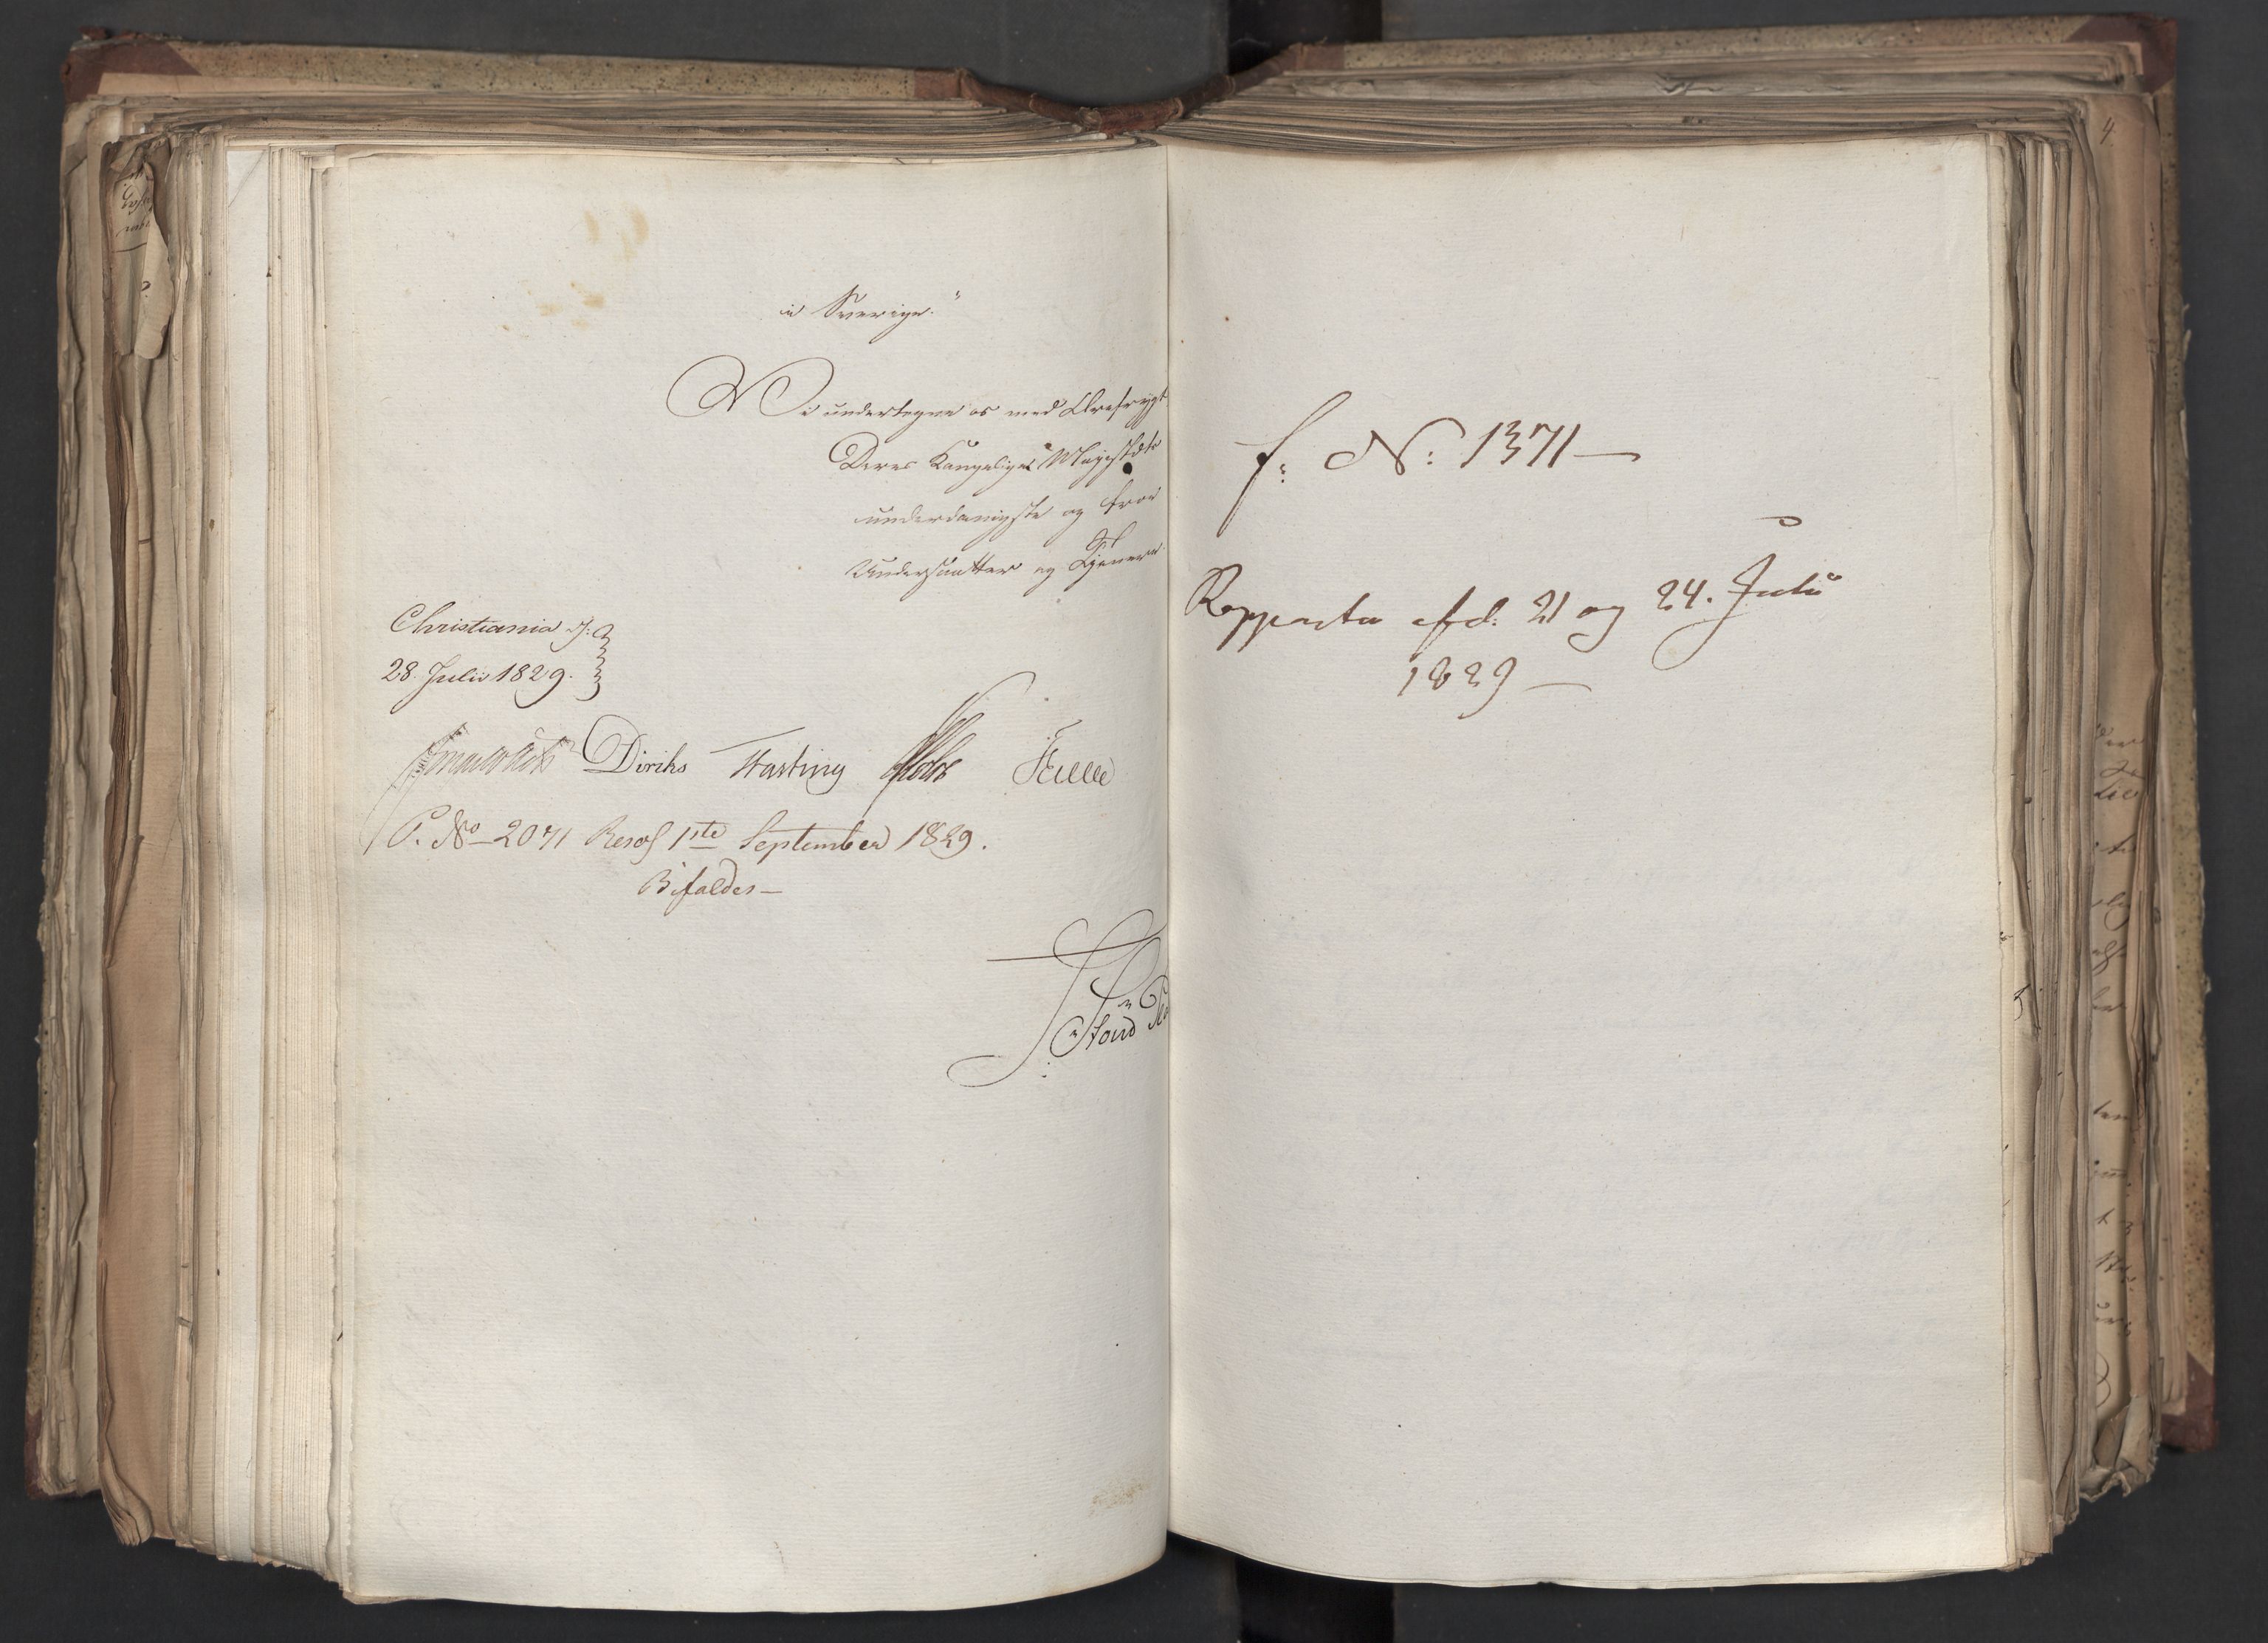 i Sverige."
Vi undertegne os med Ærefrygt
Deres Kongelige Majestæts
underdanigste og troe
Undersaatter og Tjenere
Christiania d:
28 Julii 1829.
Diriks Fasting
P. No 2071 Resol 1ste September 1829.
Bifaldes—
f: N: 1371—
Rapporter afd. 21 og 24. Juli
1829—